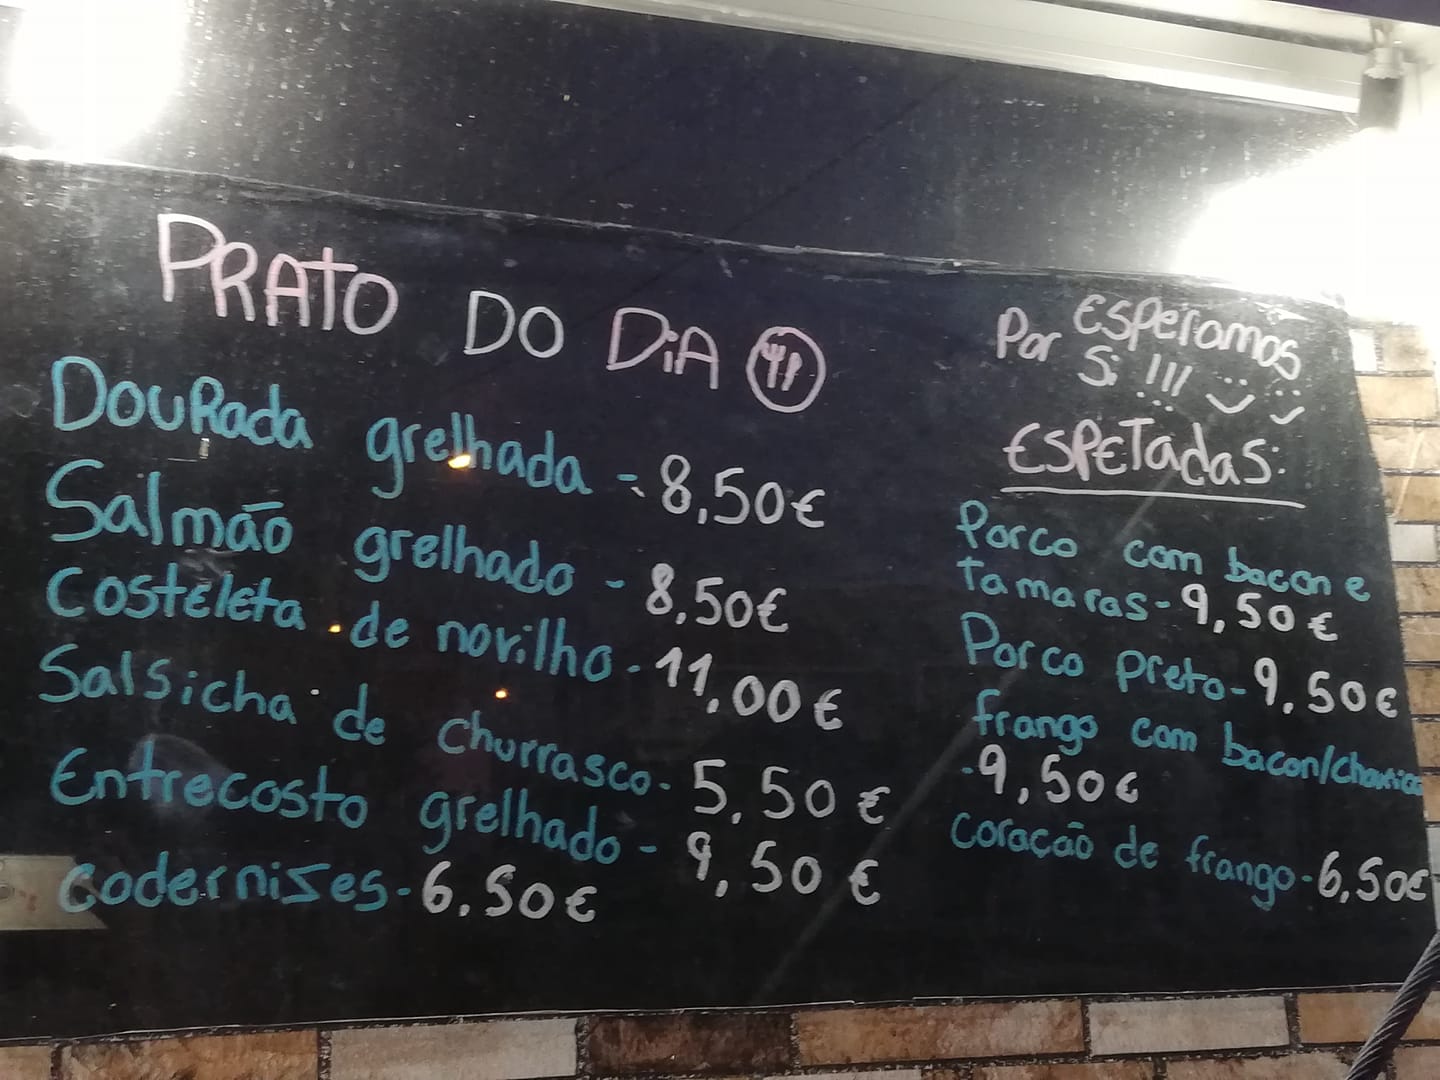 PRATO DO DiA
DOURada grelhada - 8,50€
Salmão grelhado - 8,50€
Costeleta de novilho - 11,00€
Salsicha de churrasco - 5,50€
Entrecosto grelhado - 9,50€
codernizes - 6,50€
Esperamos
Por Si !!!
ESPETadas:
Porco com bacon e
tamaras - 9,50€
Porco preto - 9,50€
frango com bacon/
- 9,50€
coração de frango - 6,50€